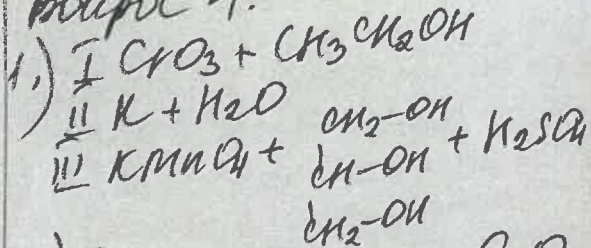 Вопрос 1.
1.) I CrO3 + CH3CH2OH
II K + H2O
III KMnO4 + CH2-OH + H2SO4
CH-OH
CH2-OH